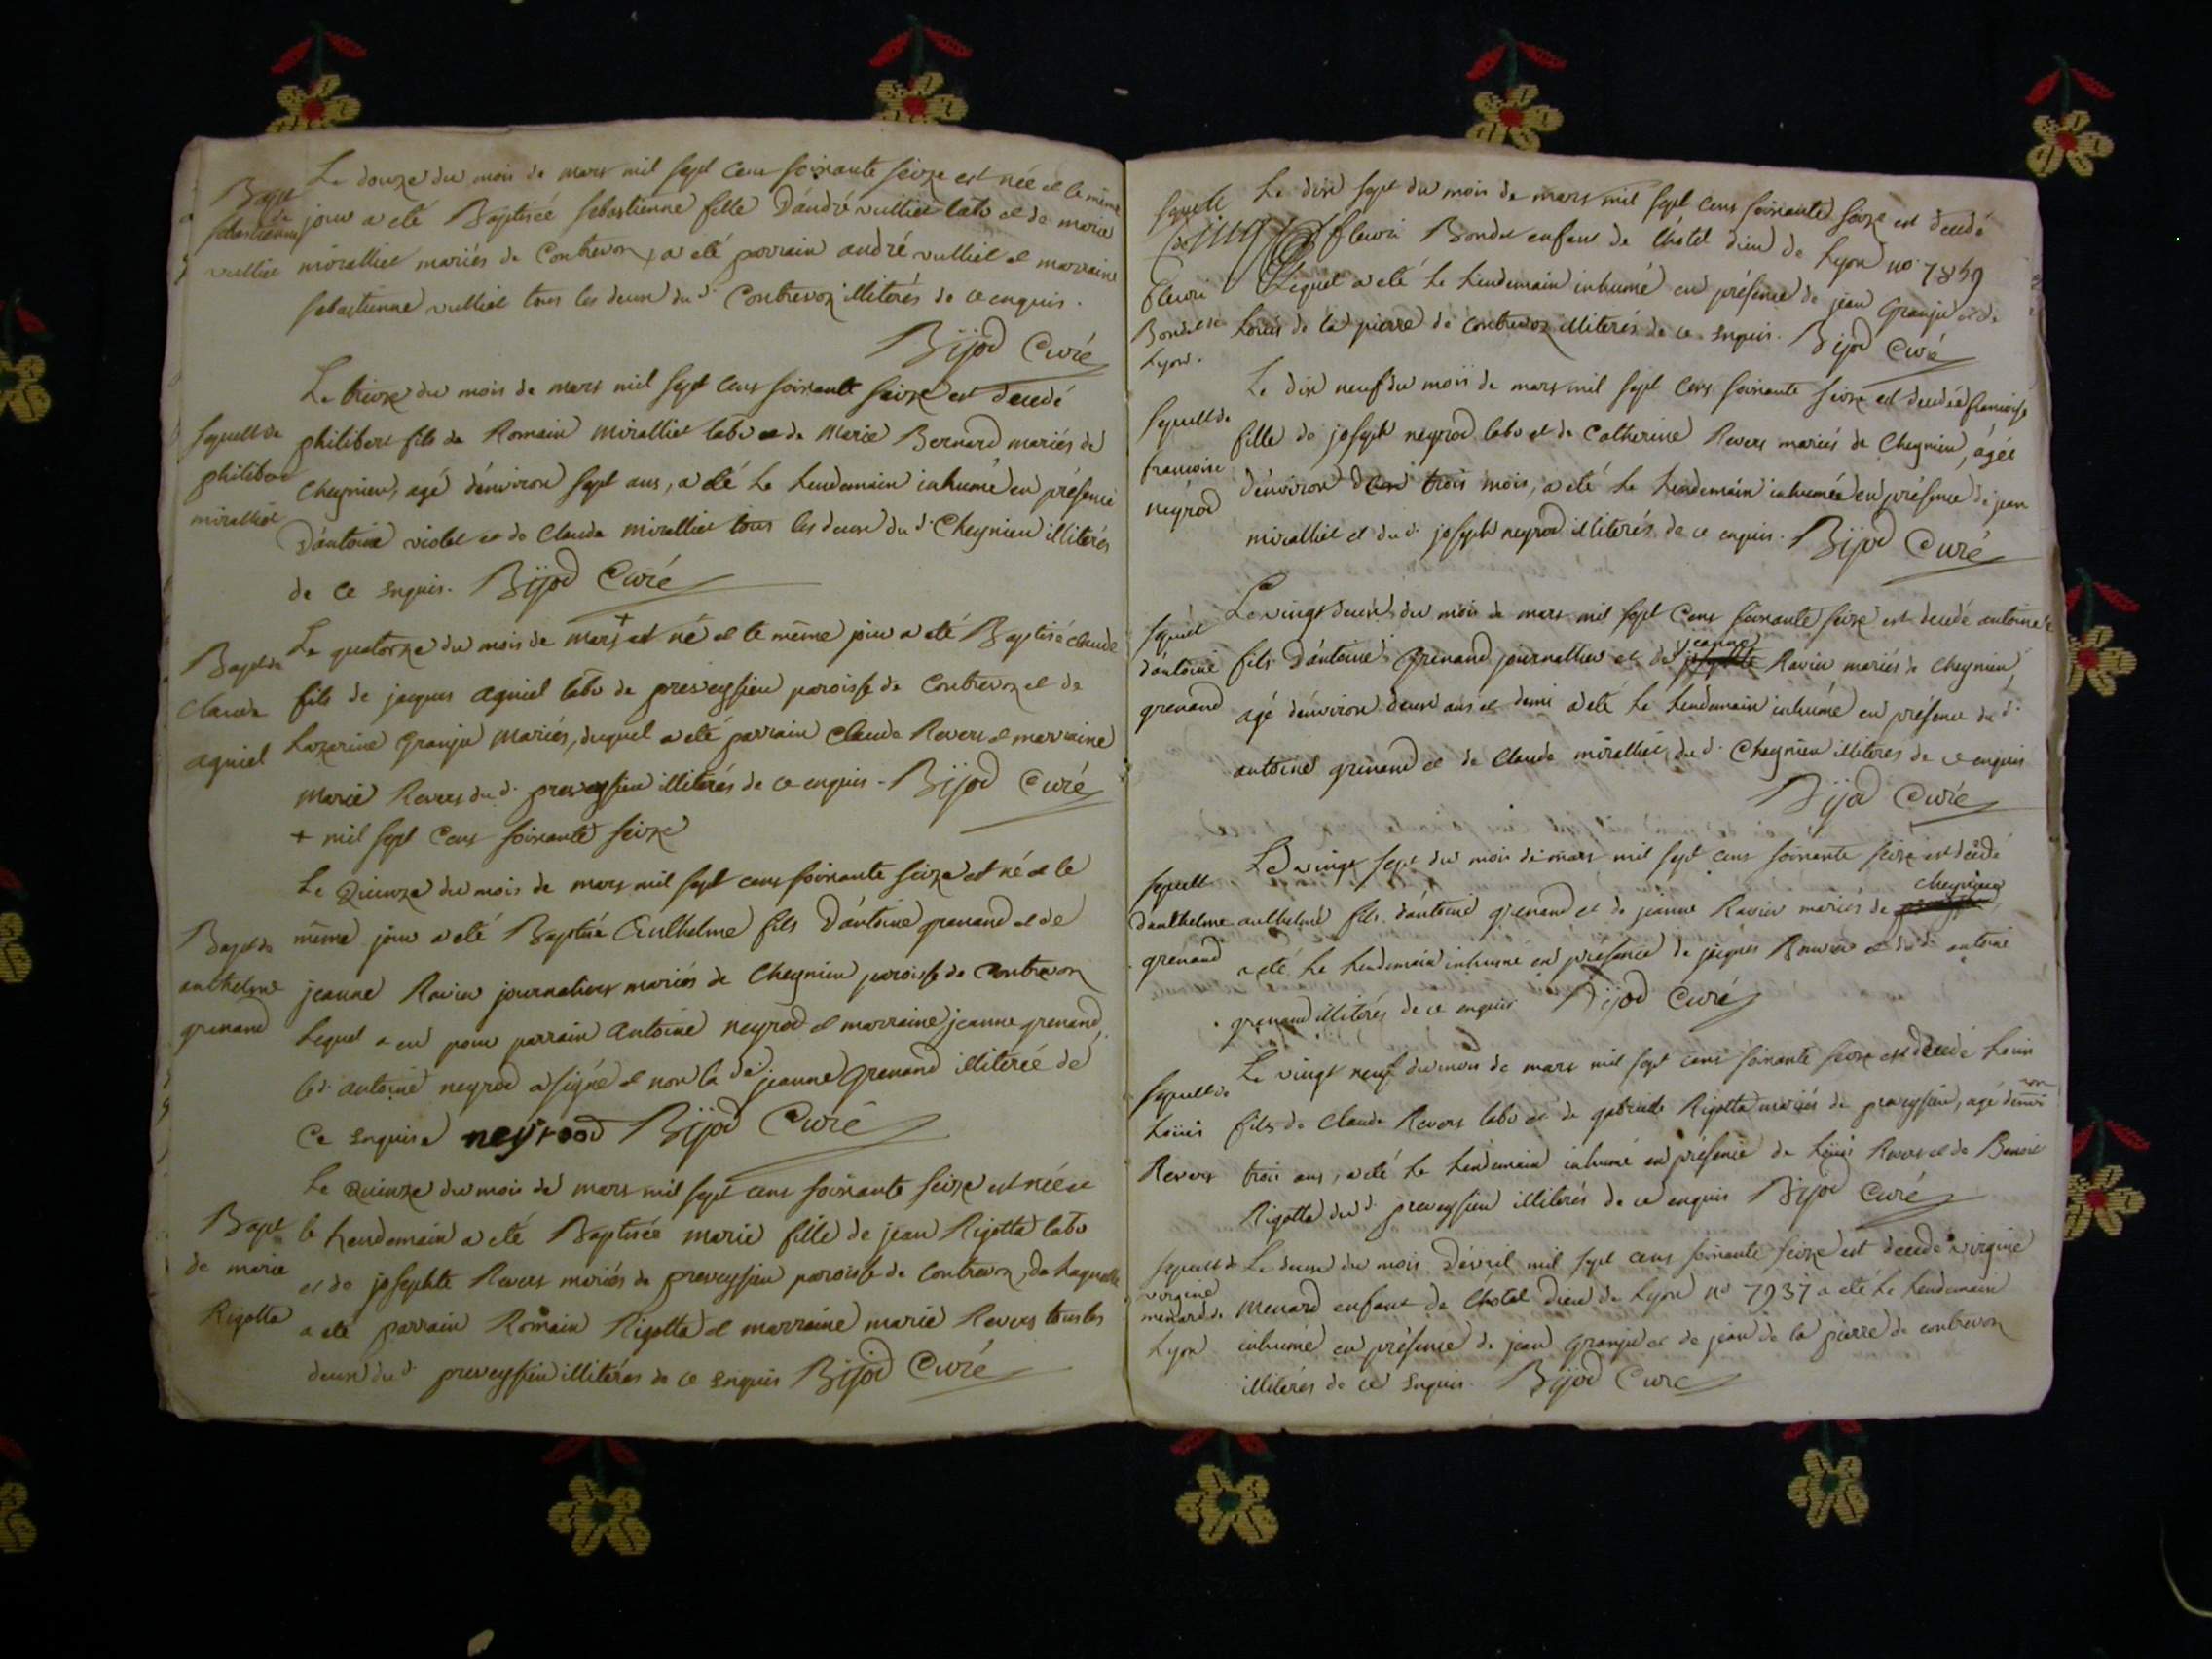 Le douze du mois de mars mil sept cens soixante seize est née et le même
Bapt de sebastienne vulliet
jour a eté Baptisée sebastienne fille d'andré vulliet labr et de marie
miralliet mariés de Contrevoz, a eté parrain andré vulliet et marraine
sebastienne vulliet tous les deux du d. Contrevoz illiterés de ce enquis.
Bijod Curé
Le treize du mois de mars mil sept cens soixante seize est decedé
sepult de philibert miralliet
philibert fils de Romain miralliet labr et de Marie Bernard mariés de
Cheynieu, agé d'environ sept ans, a eté le Lendemain inhumé en présence
d'antoine violet et de Claude miralliet tous les deux du d. Cheynieu illiterés
de ce enquis. Bijod Curé
Le quatorze du mois de mars + est né et le même jour a eté Baptisé claude
Bapt de claude agniel
fils de jacques agniel labr de preveyssieu paroisse de Contrevoz et de
Lazarine Granju mariés, duquel a eté parrain Claude Revers et marraine
Marie Revers du d. preveyssieu illiterés de ce enquis - Bijod Curé
+ mil sept Cens soixante seize
Le Quinze du mois de mars mil sept cens soixante seize est né et le
Bapt de anthelme grenand
même jour a eté Baptisé Anthelme fils d'antoine grenand et de
jeanne Ravier journaliers mariés de Cheynieu paroisse de Contrevoz
Lequel a eu pour parrain Antoine neyrod et marraine jeanne grenand,
led. antoine neyrod a signé et non la de. jeanne Grenand illiterée de
Ce enquise neyrood Bijod Curé
Le Quinze du mois de mars mil sept cens soixante seize est née et
Bapt de marie Rigotta
le Lendemain a eté Baptisée marie fille de jean Rigotta labr
et de josephte Revers mariés de preveyssieu paroisse de Contrevoz, de Laquelle
a eté parrain Romain Rigotta et marraine marie Revers tous les
deux du d. preveyssieu illiterés de ce enquis Bijod Curé
Le dix sept du mois de mars mil sept cens soixante seize est decedé
sepult de fleuri Bondet de Lyon
fleuri Bondet enfant de L'hôtel dieu de Lyon no. 7859
Lequel a eté le Lendemain inhumé en présence de jean Granju et de
Louis de la pierre de Contrevoz illiterés de ce enquis. Bijod Curé
Le dix neuf du mois de mars mil sept cens soixante seize est decedée françoise
sepult de francoise neyrod
fille de joseph neyrod labr et de Catherine Revers mariés de Cheynieu, agée
d'environ trois mois, a eté le Lendemain inhumée en présence de jean
miralliet et du d. joseph neyrod illiterés de ce enquis. Bijod Curé
Le vingt deux du mois de mars mil sept Cens soixante seize est decedé antoine
sepult d'antoine grenand
fils d'antoine Grenand journallier et de jeanne Ravier mariés de Cheynieu,
agé d'environ deux ans et demi a eté le Lendemain inhumé en présence du d.
antoine grenand et de Claude miralliet du d. Cheynieu illiteres de ce enquis
Bijod Curé
Le vingt sept du mois de mars mil sept cens soixante seize est decedé
sepult d'anthelme grenand
anthelme fils d'antoine grenand et de jeanne Ravier mariés de cheynieu
a eté le Lendemain inhumé en présence de jacques Bouvier et du d. antoine
grenand illiterés de ce enquis Bijod Curé
Le vingt neuf du mois de mars mil sept cens soixante seize est decedé Louis
sepult de Louis Revers
fils de Claude Revers labr et de gabrielle Rigotta mariés de preveyssieu, agé d'environ
trois ans, a eté le Lendemain inhumé en présence de Louis Revers et de Benoit
Rigotta du d. preveyssieu illiterés de ce enquis Bijod Curé
sepult de virginie menard de Lyon
Le deux du mois d'avril mil sept cens soixante seize est decedé virginie
Menard enfant de L'hôtel Dieu de Lyon no 7937 a eté le Lendemain
inhumé en présence de jean Granju et de jean de la pierre de contrevoz
illiterés de ce enquis. Bijod Curé